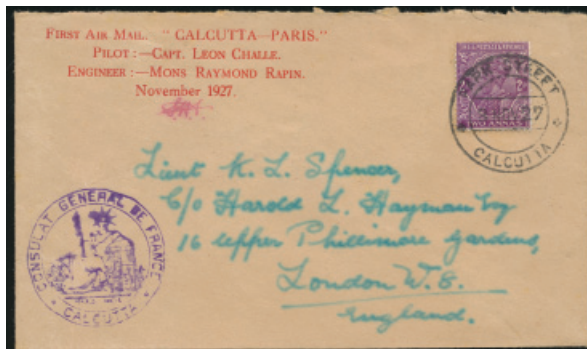 FIRST AIR MAIL. "CALCUTTA—PARIS."
PILOT :—CAPT. LEON CHALLE.
ENGINEER :—MONS RAYMOND RAPIN.
November 1927.
TWO ANNAS
PARK STREET
27
CALCUTTA
Lieut K. L. Spencer,
C/o Harold L. Hayman Esq
16 Upper Phillimore Gardens,
London W. 8.
England.
CONSULAT GENERAL DE FRANCE
CALCUTTA